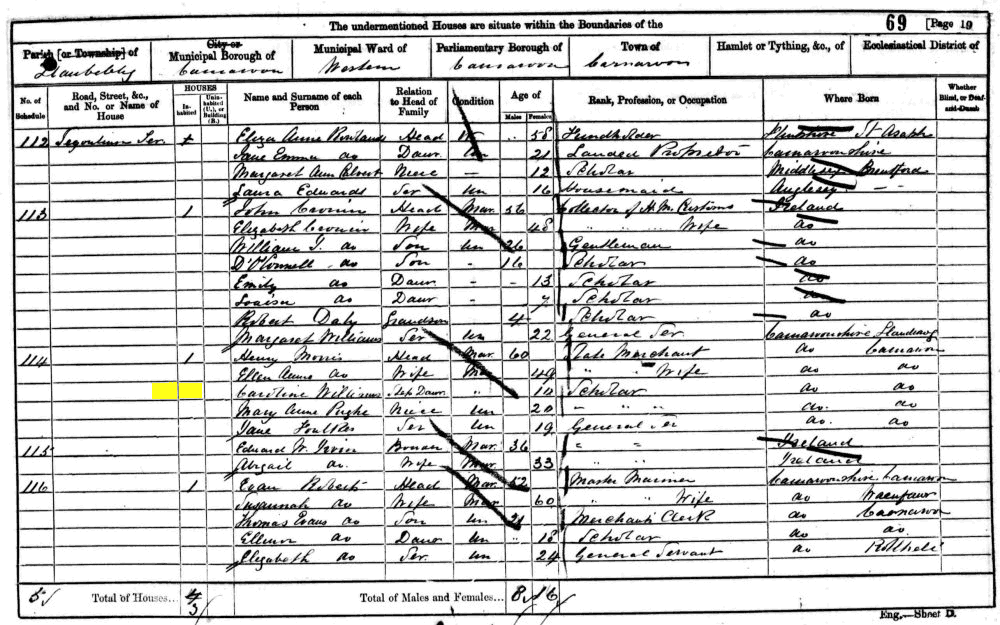 The undermentioned Houses are situate within the Boundaries of the 69 [Page 19
Parish [or Township] of City or Municipal Borough of Municipal Ward of Parliamentary Borough of Town of Hamlet or Tything, &c., of Ecclesiastical District of
Llanbeblig Carnarvon Western Carnarvon Carnarvon
No. of Schedule Road, Street, &c., and No. or Name of House HOUSES Inhabited Uninhabited (U.), or Building (B.) Name and Surname of each Person Relation to Head of Family Condition Age of Males Females Rank, Profession, or Occupation Where Born Whether Blind, or Deaf-and-Dumb
112 Segontium Ter. 1 Eliza Anne Rowlands Head 58 Fundholder Flintshire St Asaph
Jane Emma do Daur Un 21 Landed Proprietor Carnarvonshire
Margaret Ann Niece — 12 Scholar Middlesex Brentford
Laura Edwards Ser Un 16 Housemaid Anglesey — —
113 1 John Cronin Head Mar 56 Collector of H.M. Customs Ireland
Elizabeth Cronin Wife Mar 48 " " Wife do
William J. do Son Un 26 Gentleman do
D'O'Connell do Son - 16 Scholar do
Emily do Daur - - 13 Scholar do
Louisa do Daur - 7 Scholar do
Robert Daly Grandson 4 Scholar do
Margaret Williams Ser Un 22 General Ser Carnarvonshire
114 1 Henry Morris Head Mar 60 Slate Merchant do Carnarvon
Ellen Anne do Wife Mar 49 " " Wife do do
Caroline Williams Step Daur " 14 Scholar do do
Mary Anne Pughe Niece Un 20 " " " do. do
Jane Foulkes Ser Un 19 General Ser do. do
115 Edward W. Irvin Mar 36 " " Ireland
Abigail do. Wife Mar 33 " " " Ireland
116 1 Evan Roberts Head Mar 52 Master Mariner Carnarvonshire Carnarvon
Susannah do Wife Mar 60 " " Wife do Waenfawr
Thomas Evans do Son Un 21 Merchants Clerk do Carnarvon
Ellenor do Daur Un " 18 Scholar do do.
Elizabeth do Ser. Un 24 General Servant do Pwllheli
5 Total of Houses... 4/3 Total of Males and Females... 8 16
Eng.—Sheet D.